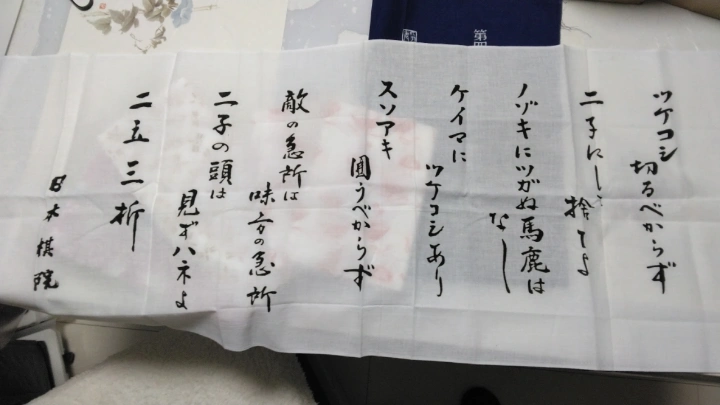 ツケコシ
切るべからず
二子にして
捨てよ
ノゾキにツガぬ馬鹿は
なし
ケイマに
ツケコシあり
スソアキ
囲うべからず
敵の急所は
味方の急所
二子の頭は
見ずハネよ
二立三析
日本棋院
第四